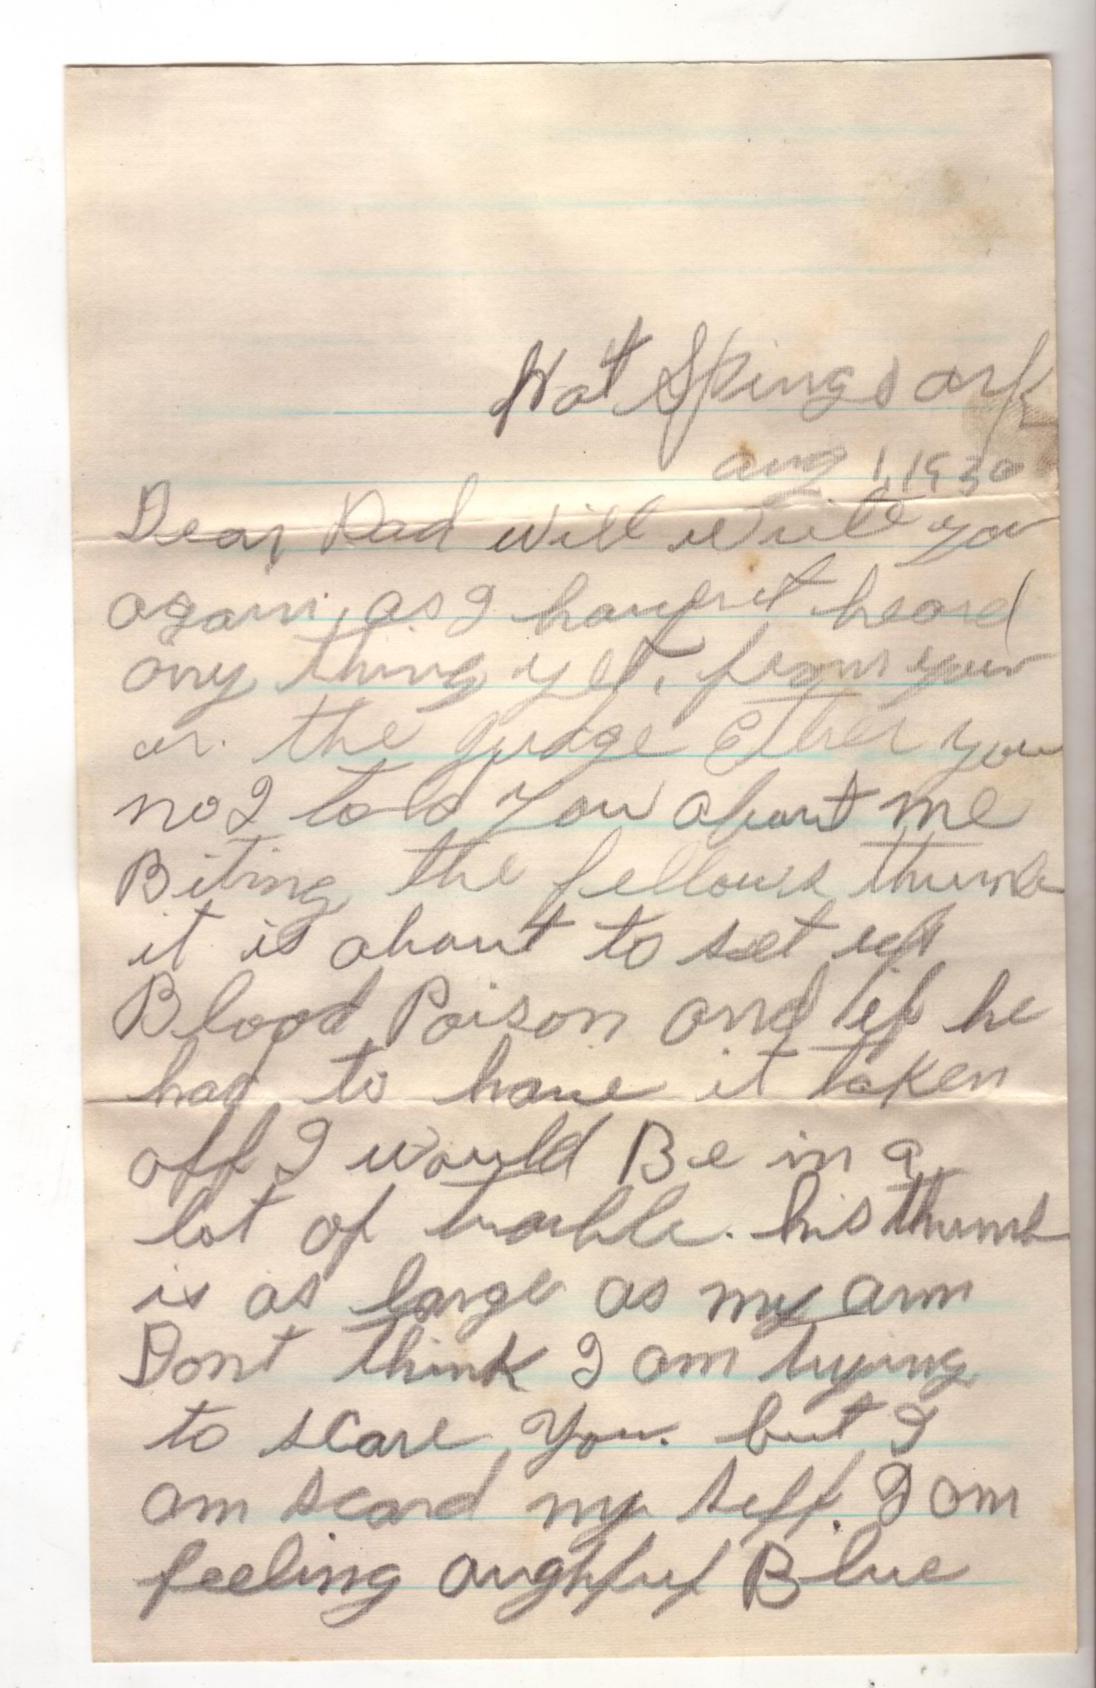 Hot Spings ark
aug 1, 1930
Dear Dad will write you
again, as I havent heard
any thing yet, from you
or. the judge Ether you
no I told you about me
Biting the fellows thumb
it is about to set up
Blood Poison and if he
had to have it taken
off I would Be in a
lot of trouble. his thumb
is as large as my arm
Dont think I am trying
to scare you. but I
am scard my self. I am
feeling aughful Blue